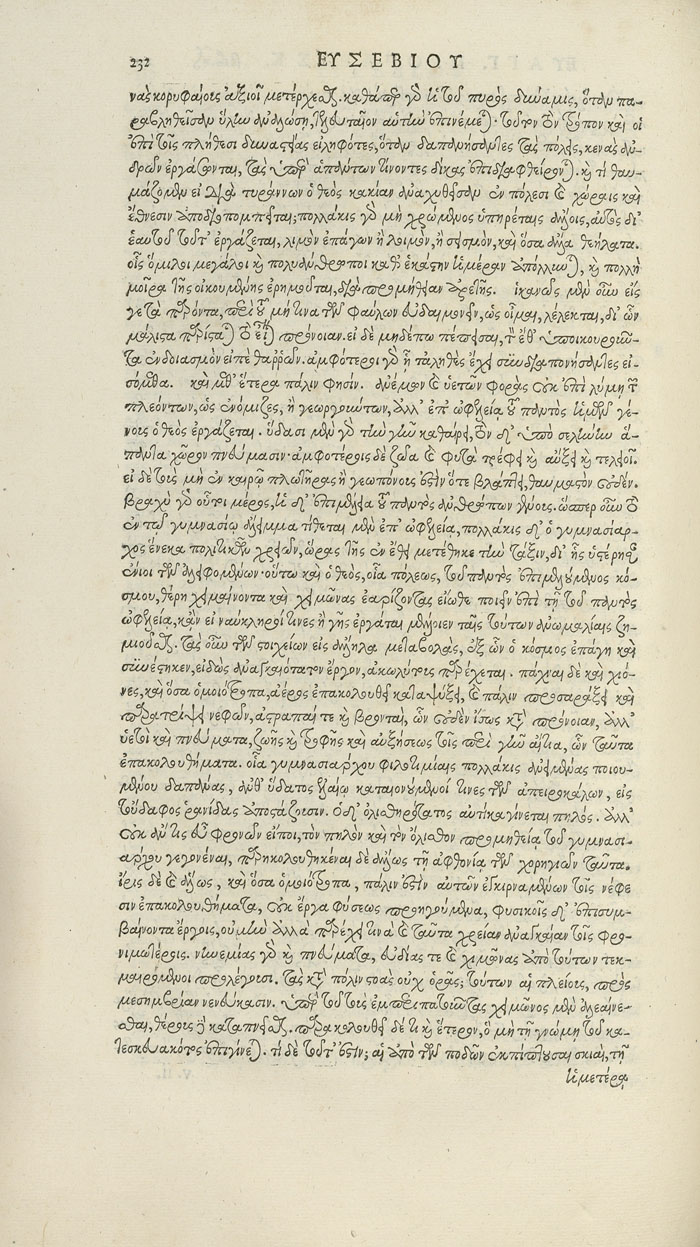 232 ΕΥΣΕΒΙΟΥ
νας κορυφαίοις ἀξιοῖ μετέρχεσθαι. καθάπερ γὸ ἡ τοῦ πυρὸς δύναμις, ὅταν πα-
ραβληθεῖσαν ὕλην ἀναλώσῃ,
ἐπὶ τοῖς πλήθεσι δυναστείας εἰληφότες, ὅταν δαπανήσωσι τὰς πόλεις, κενὰς ἀν-
δρῶν ἐργάζονται, τὰς ὑπὲρ ἁπάντων τίνοντες δίκας ἐπιδιαφθείρονται. καὶ τί θαυ-
μάζομεν εἰ διὰ τυράννων ὁ θεὸς κακίαν ἀναχυθεῖσαν ἐν πόλεσι καὶ χώραις καὶ
ἔθνεσιν ἀποδιοπομπεῖται; πολλάκις γὰρ μὴ χρώμενος ὑπηρέταις ἄλλοις, αὐτὸς δι'
ἑαυτοῦ τοῦτ' ἐργάζεται, λιμὸν ἐπάγων ἢ λοιμὸν, ἢ σεισμὸν, καὶ ὅσα ἄλλα θεήλατα.
οἷς ὅμιλοι μεγάλοι καὶ πολυάνθρωποι καθ' ἑκάστην ἡμέραν ἀπόλλυνται, καὶ πολλὴ
μοῖρα τῆς οἰκουμένης ἐρημοῦται, διὰ προμήθειαν ἀρετῆς. ἱκανῶς μὲν οὖν εἴς
γε τὰ παρόντα, περὶ τοῦ μή τινα τῶν φαύλων εὐδαιμονεῖν, ὡς οἶμαι, λέλεκται, δι' ὧν
μάλιστα παρίσταται τὸ εἶναι πρόνοιαν. εἰ δὲ μηδέπω πέπεισαι, τὸν ἔθ' ὑποικουροῦν-
τα ἐνδοιασμὸν εἰπὲ θαρρῶν. ἀμφότεροι γὰρ ᾗ τἀληθὲς ἔχει συνδιαπονήσαντες εἰ-
σόμεθα. καὶ μεθ' ἕτερα πάλιν φησίν. ἀνέμων καὶ ὑετῶν φορὰς οὐκ ἐπὶ λύμῃ τῶν
πλεόντων, ὡς ἐνόμιζες, ἢ γεωργούντων, ἀλλ' ἐπ' ὠφελείᾳ τοῦ παντὸς ἡμῶν γέ-
νους ὁ θεὸς ἐργάζεται. ὕδασι μὲν γὰρ τὴν γῆν καθαίρει, τὸν δ' ὑπὸ σελήνην ἅ-
παντα χῶρον πνεύμασιν· ἀμφοτέροις δὲ ζῶα καὶ φυτὰ τρέφει καὶ αὔξει καὶ τελειοῖ.
εἰ δὲ τοὺς μὴ ἐν καιρῷ πλωτῆρας ἢ γεωπόνους ἔστιν ὅτε βλάπτει, θαυμαστὸν οὐδέν.
βραχὺ γὰρ οὗτοι μέρος, ἡ δ' ἐπιμέλεια τοῦ παντὸς ἀνθρώπων γένους. ὥσπερ οὖν τὸ
ἐν τῷ γυμνασίῳ ἄλειμμα τίθεται μὲν ἐπ' ὠφελείᾳ, πολλάκις δ' ὁ γυμνασίαρ-
χος ἕνεκα πολιτικῶν χρειῶν, ὥρας τῆς ἐν ἔθει μετέθηκε τὴν τάξιν, δι' ἧς ὑστέρησαν
ἔνιοι τῶν ἀλειφομένων· οὕτω καὶ ὁ θεὸς, οἷα πόλεως, τοῦ παντὸς ἐπιμελούμενος κό-
σμου, θέρη χειμαίνοντα καὶ χειμῶνας ἐαρίζοντας εἴωθε ποιεῖν ἐπὶ τῇ τοῦ παντὸς
ὠφελείᾳ, κἂν εἰ ναύκληροί τινες ἢ γῆς ἐργάται μέλλοιεν ταῖς τούτων ἀνωμαλίαις ζη-
μιοῦσθαι. τὰς οὖν τῶν στοιχείων εἰς ἄλληλα μεταβολὰς, ἐξ ὧν ὁ κόσμος ἐπάγη καὶ
συνέστηκεν, εἰδὼς ἀναγκαιότατον ἔργον, ἀκωλύτους παρέχεται. πάχναι δὲ καὶ χιό-
νες, καὶ ὅσα ὁμοιότροπα, ἀέρος ἐπακολουθεῖ καταψύξει, καὶ πάλιν προσαράξει καὶ
παρατρίψει νεφῶν, ἀστραπαί τε καὶ βρονταὶ, ὧν οὐδὲν ἴσως κατὰ πρόνοιαν, ἀλλ'
ὑετοὶ καὶ πνεύματα, ζωῆς καὶ τροφῆς καὶ αὐξήσεως τοῖς περὶ γῆν αἴτια, ὧν ταῦτα
ἐπακολουθήματα. οἷα γυμνασιάρχου φιλοτιμίαις πολλάκις ἀνειμένας ποιου-
μένου δαπάνας, ἀνθ' ὕδατος ἐλαίῳ καταιονούμενοί τινες τῶν ἀπειροκάλων, εἰς
τοὔδαφος ῥανίδας ἀποστάζουσιν. ὁ δ' ὀλισθηρότατος αὐτίκα γίνεται πηλός. ἀλλ'
οὐκ ἄν τις εὖ φρονῶν εἴποι, τὸν πηλὸν καὶ τὸν ὄλισθον προμηθείᾳ τοῦ γυμνασι-
άρχου γεγονέναι, παρηκολουθηκέναι δὲ ἄλλως τῇ ἀφθονίᾳ τῶν χορηγιῶν ταῦτα.
ἶρις δὲ καὶ ἅλως, καὶ ὅσα ὁμοιότροπα, πάλιν ἐστὶν αὐγῶν ἐγκιρναμένων τοῖς νέφε
σιν ἐπακολουθήματα, οὐκ ἔργα φύσεως προηγούμενα, φυσικοῖς δ' ἐπισυμ-
βαίνοντα ἔργοις, οὐ μὴν ἀλλὰ παρέχει τινὰ καὶ ταῦτα χρείαν ἀναγκαίαν τοῖς φρο-
νιμωτέροις. νηνεμίας γὰρ καὶ πνεύματα, εὐδίας τε καὶ χειμῶνας ἀπὸ τούτων τεκ-
μαιρόμενοι προλέγουσι. τὰς κατὰ πόλιν στοὰς οὐχ ὁρᾷς; τούτων αἱ πλείους, πρὸς
μεσημβρίαν νενεύκασιν. ὑπὲρ τοῦ τοὺς ἐμπεριπατοῦντας χειμῶνος μὲν ἀλεαίνε-
σθαι, θέρους δὲ καταπνεῖσθαι. παρακολουθεῖ δέ τι καὶ ἕτερον, ὃ μὴ τῇ γνώμῃ τοῦ κα-
τεσκευακότος ἐπιγίνεται. τί δὲ τοῦτ' ἐστὶν; αἱ ἀπὸ τῶν ποδῶν ἐκπίπτουσαι σκιαὶ, τῇ
ἡμετέρᾳ